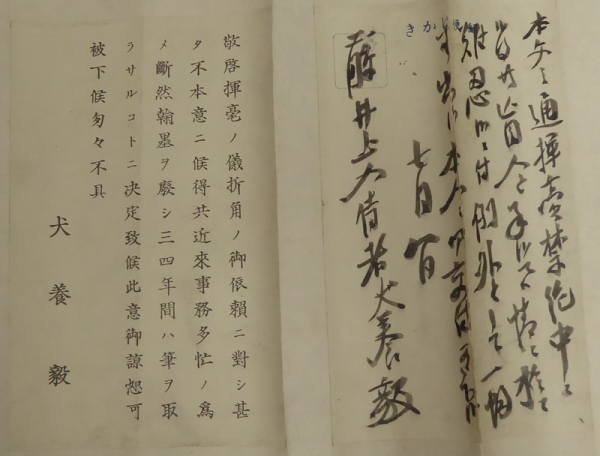 本文之通揮毫禁絶中之
盲人之 情ニ於て
難忍 付例外として一
本人
七月 日
藤井上人侍者 犬養毅
きか 便
敬啓揮毫ノ儀折角ノ御依賴ニ對シ甚
タ不本意ニ候得共近來事務多忙ノ爲
メ斷然翰墨ヲ廢シ三四年間ハ筆ヲ取
ラサルコトニ決定致候此意御諒恕可
被下候匆々不具
犬養毅